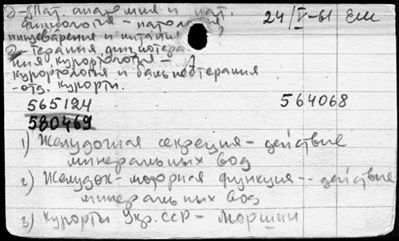 Пат. анатомия и пат. 24/V-61
физиология - патология
пищеварения и питания
2- Терапия физиотера-
пия курортология -
курортология и бальнеотерапия
- отд. курорты.
565124 564068
580469
1) Желудочная секреция - действие
минеральных вод
2) Желудок - моторная функция -- действие
минеральных вод
3) Курорты Укр. ССР - Моршин